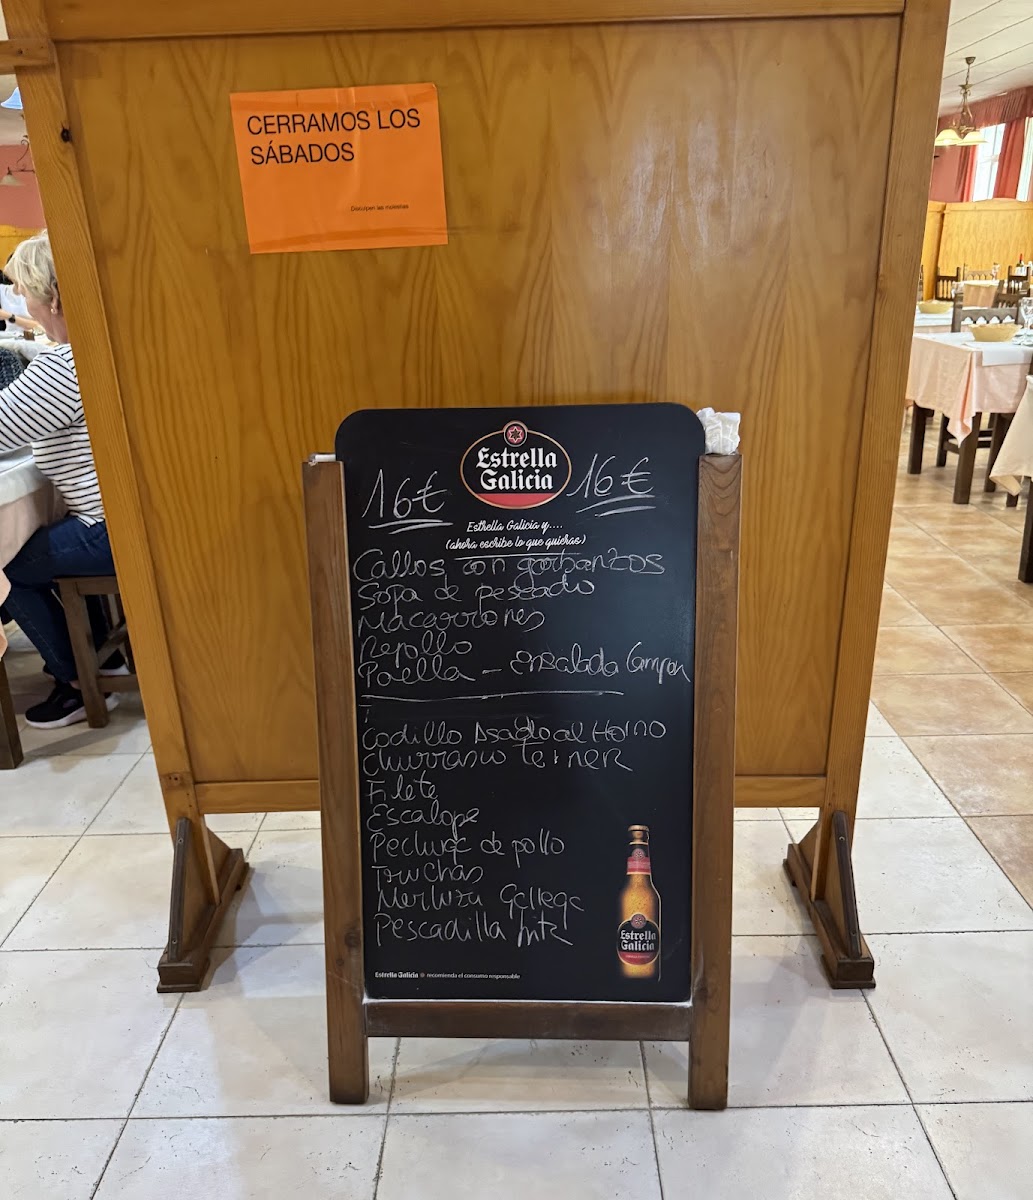 CERRAMOS LOS
SÁBADOS
Disculpen las molestias
Estrella
Galicia
16€
16€
Estrella Galicia y....
(ahora escribe lo que quieras)
Callos con garbanzos
Sopa de pescado
Macarrones
Repollo
Paella - Ensalada Campera
Codillo Asado al Horno
Churrasco Ternera
Filete
Escalope
Pechuga de pollo
Truchas
Merluza Gallega
Pescadilla frita
Estrella
Galicia
Estrella Galicia recomienda el consumo responsable